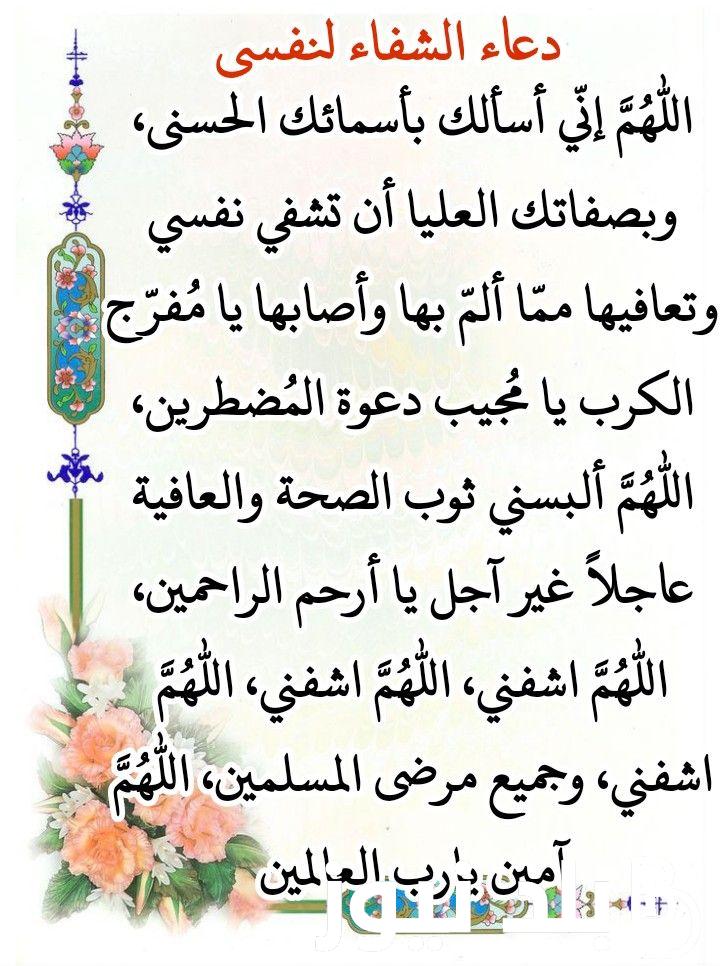 دعاء الشفاء لنفسى
اللهُمَّ إنّي أسألك بأسمائك الحسنى،
وبصفاتك العليا أن تشفي نفسي
وتعافيها ممّا ألمّ بها وأصابها يا مُفرّج
الكرب يا مُجيب دعوة المُضطرين،
اللهُمَّ ألبسني ثوب الصحة والعافية
عاجلاً غير آجل يا أرحم الراحمين،
اللهُمَّ اشفني، اللهُمَّ اشفني، اللهُمَّ
اشفني، وجميع مرضى المسلمين، اللهُمَّ
آمين يارب العالمين
بلد نيوز